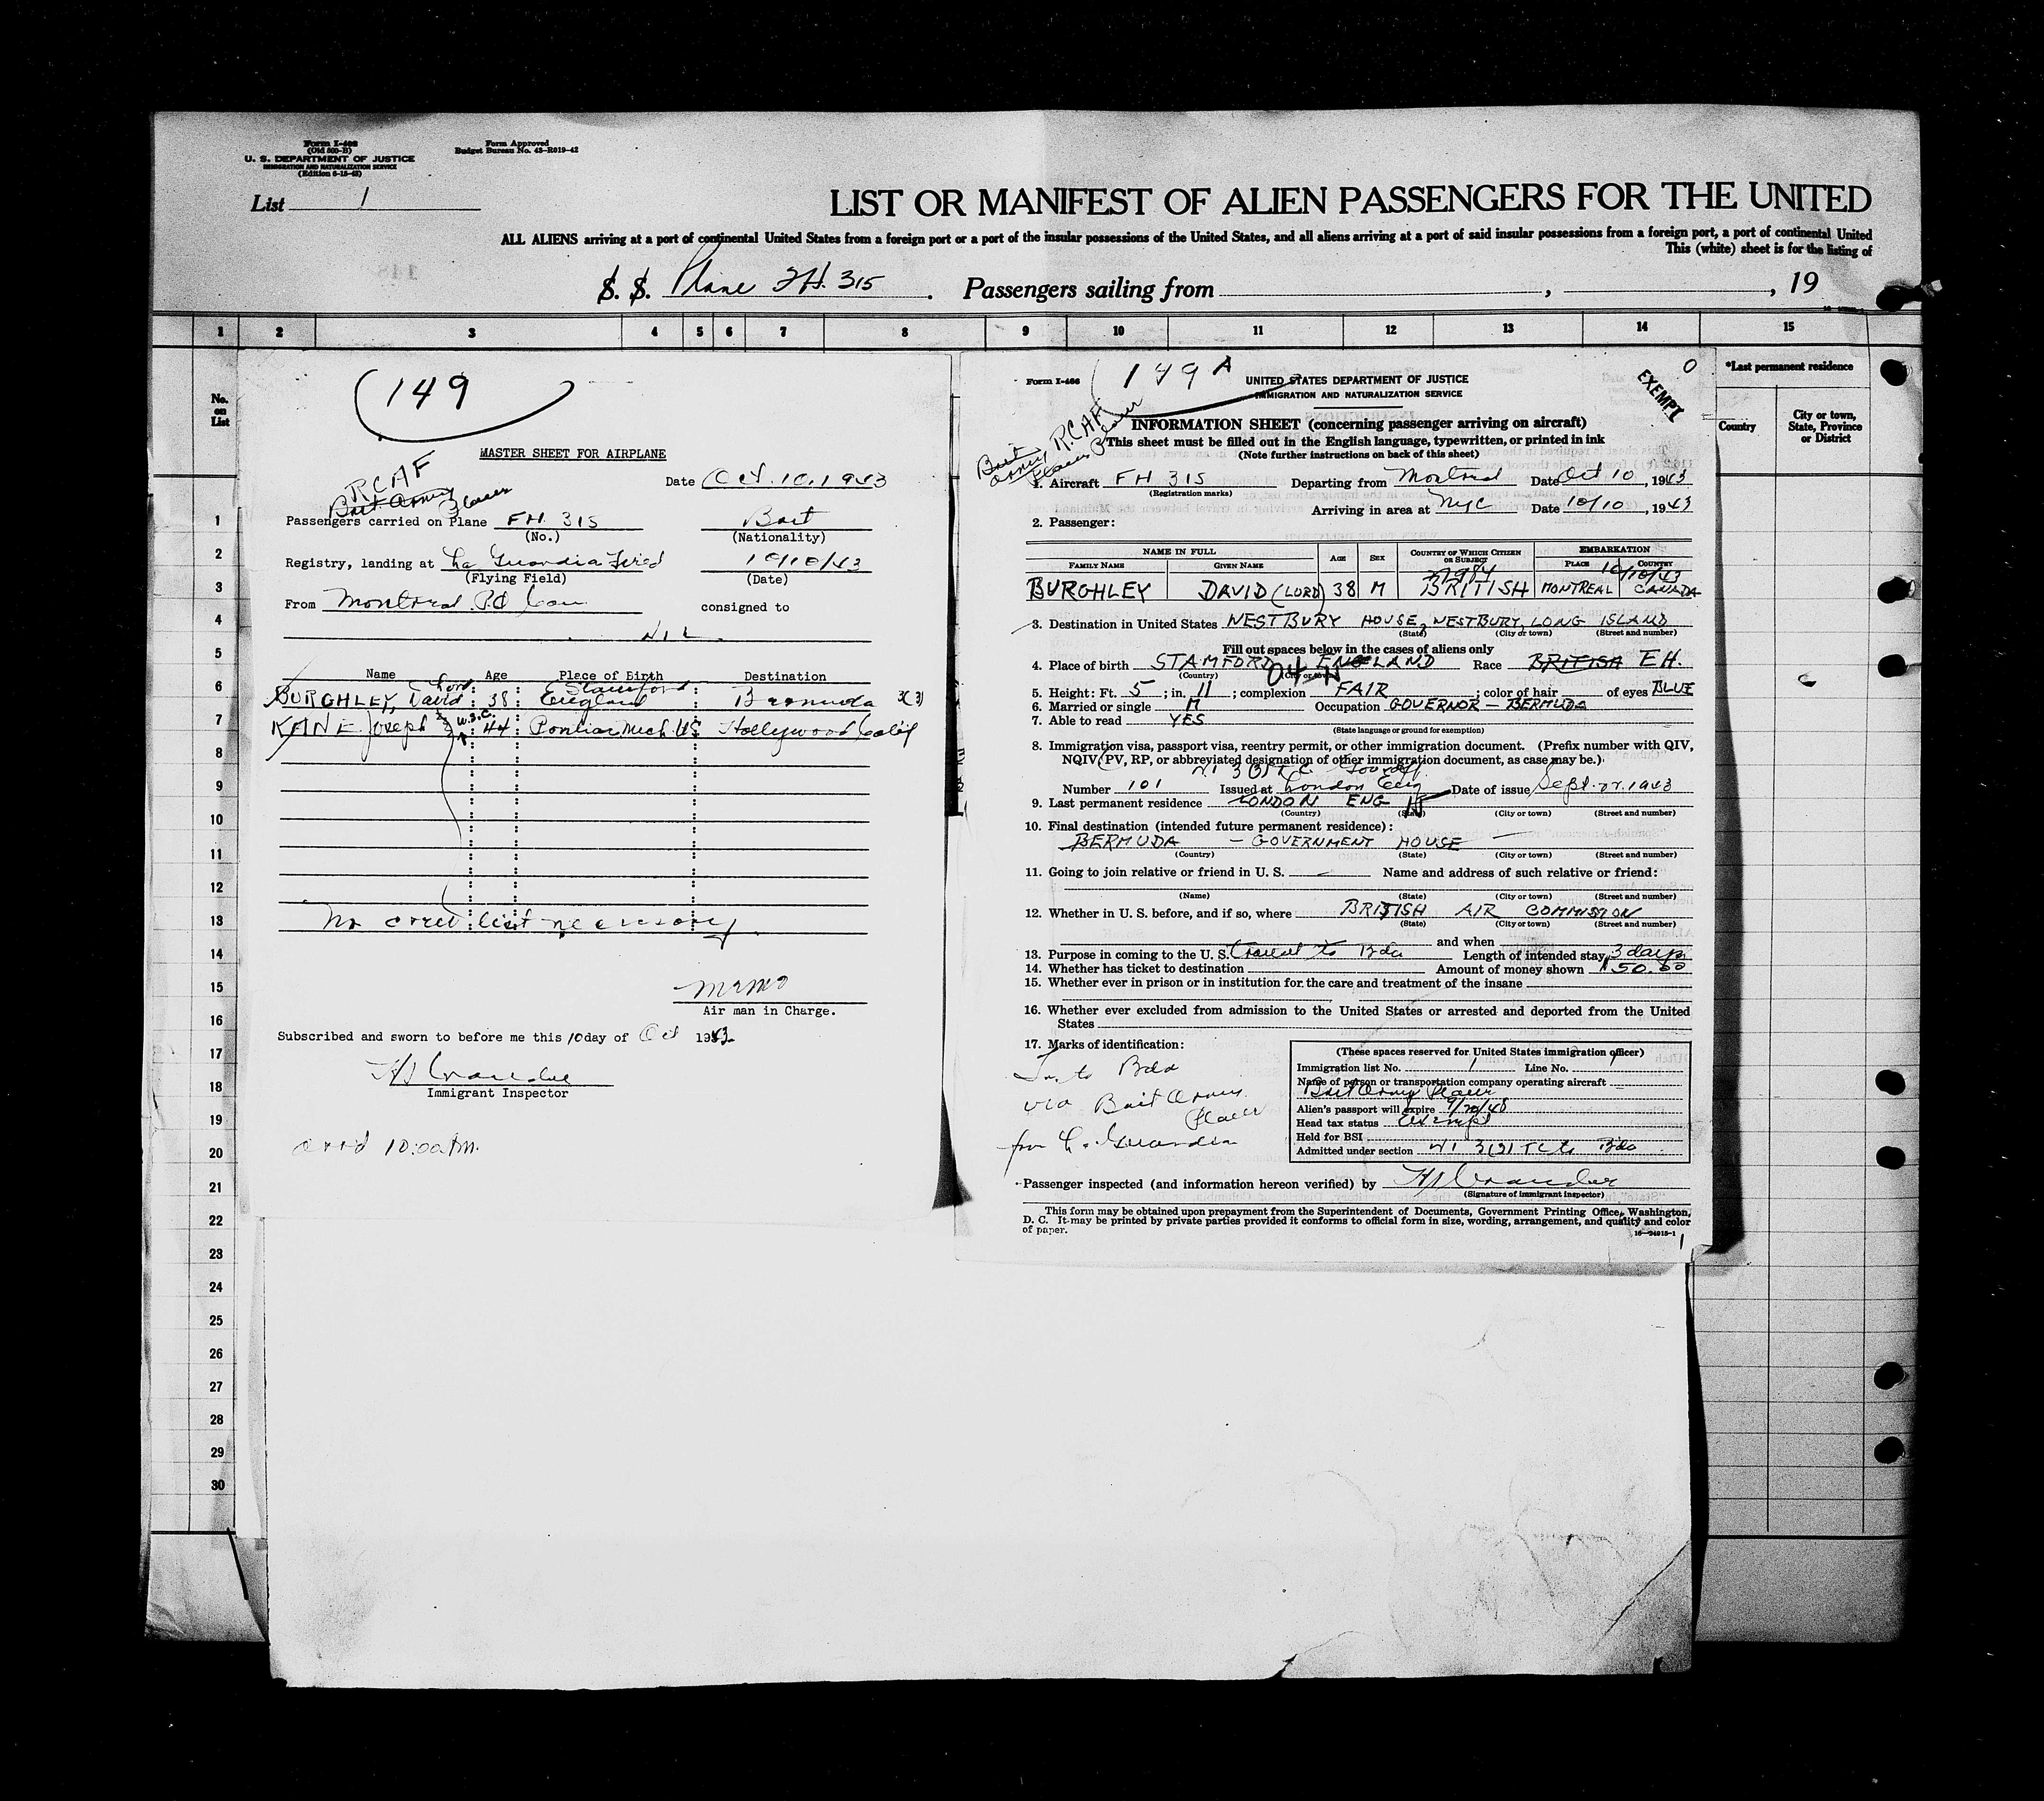 Form I-466
(Old 500-B)
U. S. DEPARTMENT OF JUSTICE
IMMIGRATION AND NATURALIZATION SERVICE
(Edition 6-15-43)
Form Approved
Budget Bureau No. 43-R019-42
List 1
LIST OR MANIFEST OF ALIEN PASSENGERS FOR THE UNITED
ALL ALIENS arriving at a port of continental United States from a foreign port or a port of the insular possessions of the United States, and all aliens arriving at a port of said insular possessions from a foreign port, a port of continental United
This (white) sheet is for the listing of
S. S. Plane FH. 315. Passengers sailing from , , 19
1 2 3 4 5 6 7 8 9 10 11 12 13 14 15
No. on List
1
2
3
4
5
6
7
8
9
10
11
12
13
14
15
16
17
18
19
20
21
22
23
24
25
26
27
28
29
30
149
MASTER SHEET FOR AIRPLANE
RCAF
Date Oct. 10, 1943
Passengers carried on Plane FH. 315
(No.)
(Nationality)
Registry, landing at La Guardia Field 10/10/43
(Flying Field) (Date)
From Montreal consigned to
NIL
Name Age Place of Birth Destination
BURGHLEY, David Lord 38 Stamford England Bermuda 3(3)
KANE Joseph 44 Pontiac Mich US Hollywood Calif
No crew list necessary
Air man in Charge.
Subscribed and sworn to before me this 10 day of Oct 1943
Immigrant Inspector
arrd 10:00 PM.
Form I-466
149 A
UNITED STATES DEPARTMENT OF JUSTICE
IMMIGRATION AND NATURALIZATION SERVICE
EXEMPT
0
RCAF
INFORMATION SHEET (concerning passenger arriving on aircraft)
This sheet must be filled out in the English language, typewritten, or printed in ink
(Note further instructions on back of this sheet)
1. Aircraft FH 315 Departing from Montreal Date Oct 10, 1943
(Registration marks)
Arriving in area at NYC Date 10/10, 1943
2. Passenger:
NAME IN FULL AGE SEX COUNTRY OF WHICH CITIZEN OR SUBJECT EMBARKATION
FAMILY NAME GIVEN NAME PLACE COUNTRY
10/10/43
BURGHLEY DAVID (LORD) 38 M BRITISH MONTREAL CANADA
3. Destination in United States WESTBURY HOUSE, WESTBURY, LONG ISLAND
(State) (City or town) (Street and number)
Fill out spaces below in the cases of aliens only
4. Place of birth STAMFORD ENGLAND Race BRITISH EH.
(Country) (City or town)
5. Height: Ft. 5; in. 11; complexion FAIR; color of hair of eyes BLUE
6. Married or single M Occupation GOVERNOR – BERMUDA
7. Able to read YES
(State language or ground for exemption)
8. Immigration visa, passport visa, reentry permit, or other immigration document. (Prefix number with QIV,
NQIV, PV, RP, or abbreviated designation of other immigration document, as case may be.)
Number 101 Issued at London Eng Date of issue Sept. 1943
9. Last permanent residence LONDON ENG
(Country) (State) (City or town) (Street and number)
10. Final destination (intended future permanent residence):
BERMUDA – GOVERNMENT HOUSE
(Country) (State) (City or town) (Street and number)
11. Going to join relative or friend in U. S. — Name and address of such relative or friend:
(Name) (State) (City or town) (Street and number)
12. Whether in U. S. before, and if so, where BRITISH AIR COMMISSION
(State) (City or town) (Street and number)
and when
13. Purpose in coming to the U. S. transit to Bda Length of intended stay 3 days
14. Whether has ticket to destination Amount of money shown $50.00
15. Whether ever in prison or in institution for the care and treatment of the insane
16. Whether ever excluded from admission to the United States or arrested and deported from the United
States
17. Marks of identification:
to Bda
via
from La Guardia
(These spaces reserved for United States immigration officer)
Immigration list No. 1 Line No. 1
Name of person or transportation company operating aircraft
Alien's passport will expire 9/20/48
Head tax status Exempt
Held for BSI
Admitted under section
Passenger inspected (and information hereon verified) by
(Signature of immigrant inspector)
This form may be obtained upon prepayment from the Superintendent of Documents, Government Printing Office, Washington,
D. C. It may be printed by private parties provided it conforms to official form in size, wording, arrangement, and quality and color
of paper.
1
*Last permanent residence
Country
City or town, State, Province or District